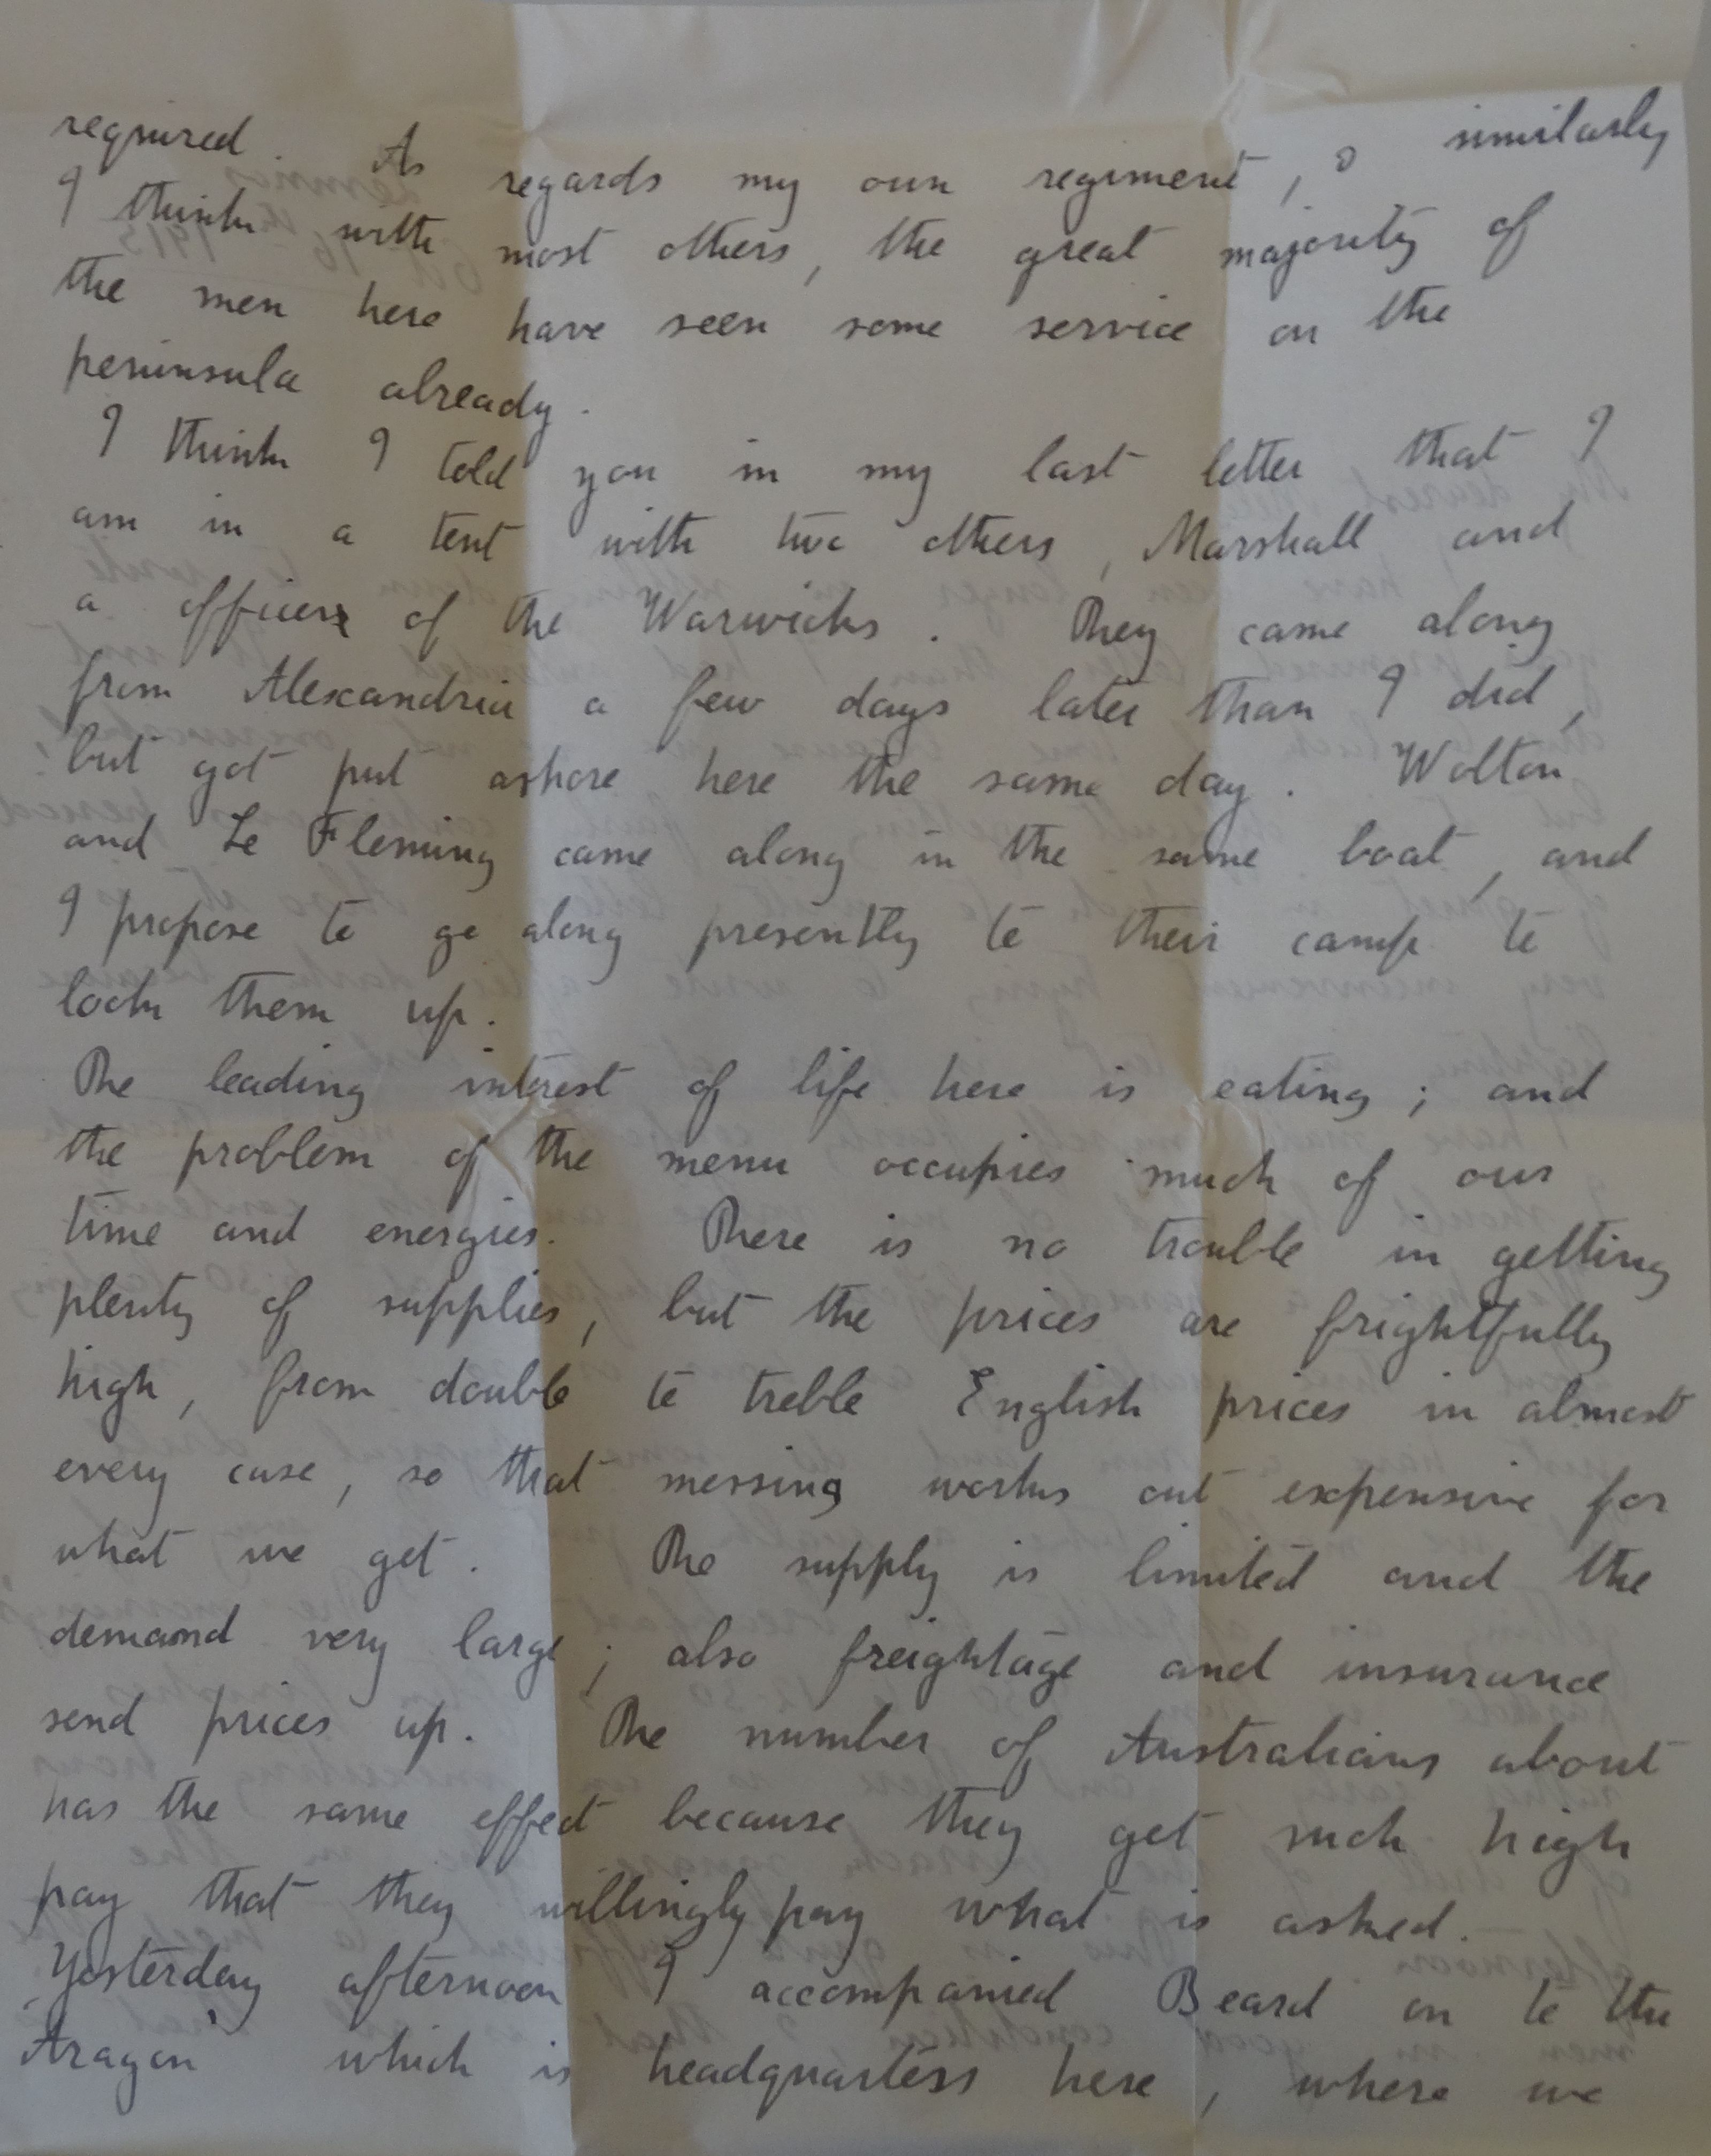 required. As regards my own regiment, & similarly
I think with most others, the great majority of
the men here have seen some service on the
peninsula already.
I think I told you in my last letter that I
am in a tent with two others, Marshall and
a officer of the Warwicks. They came along
from Alexandria a few days later than I did,
but got put ashore here the same day. Wolton
and Le Fleming came along in the same boat, and
I propose to go along presently to their camp to
look them up.
The leading interest of life here is eating; and
the problem of the menu occupies much of our
time and energies. There is no trouble in getting
plenty of supplies, but the prices are frightfully
high, from double to treble English prices in almost
every case, so that messing works out expensive for
what we get. The supply is limited and the
demand very large; also freightage and insurance
send prices up. The number of Australians about
has the same effect because they get such high
pay that they willingly pay what is asked.
Yesterday afternoon I accompanied Beard on to the
"Aragon" which is headquarters here, where we